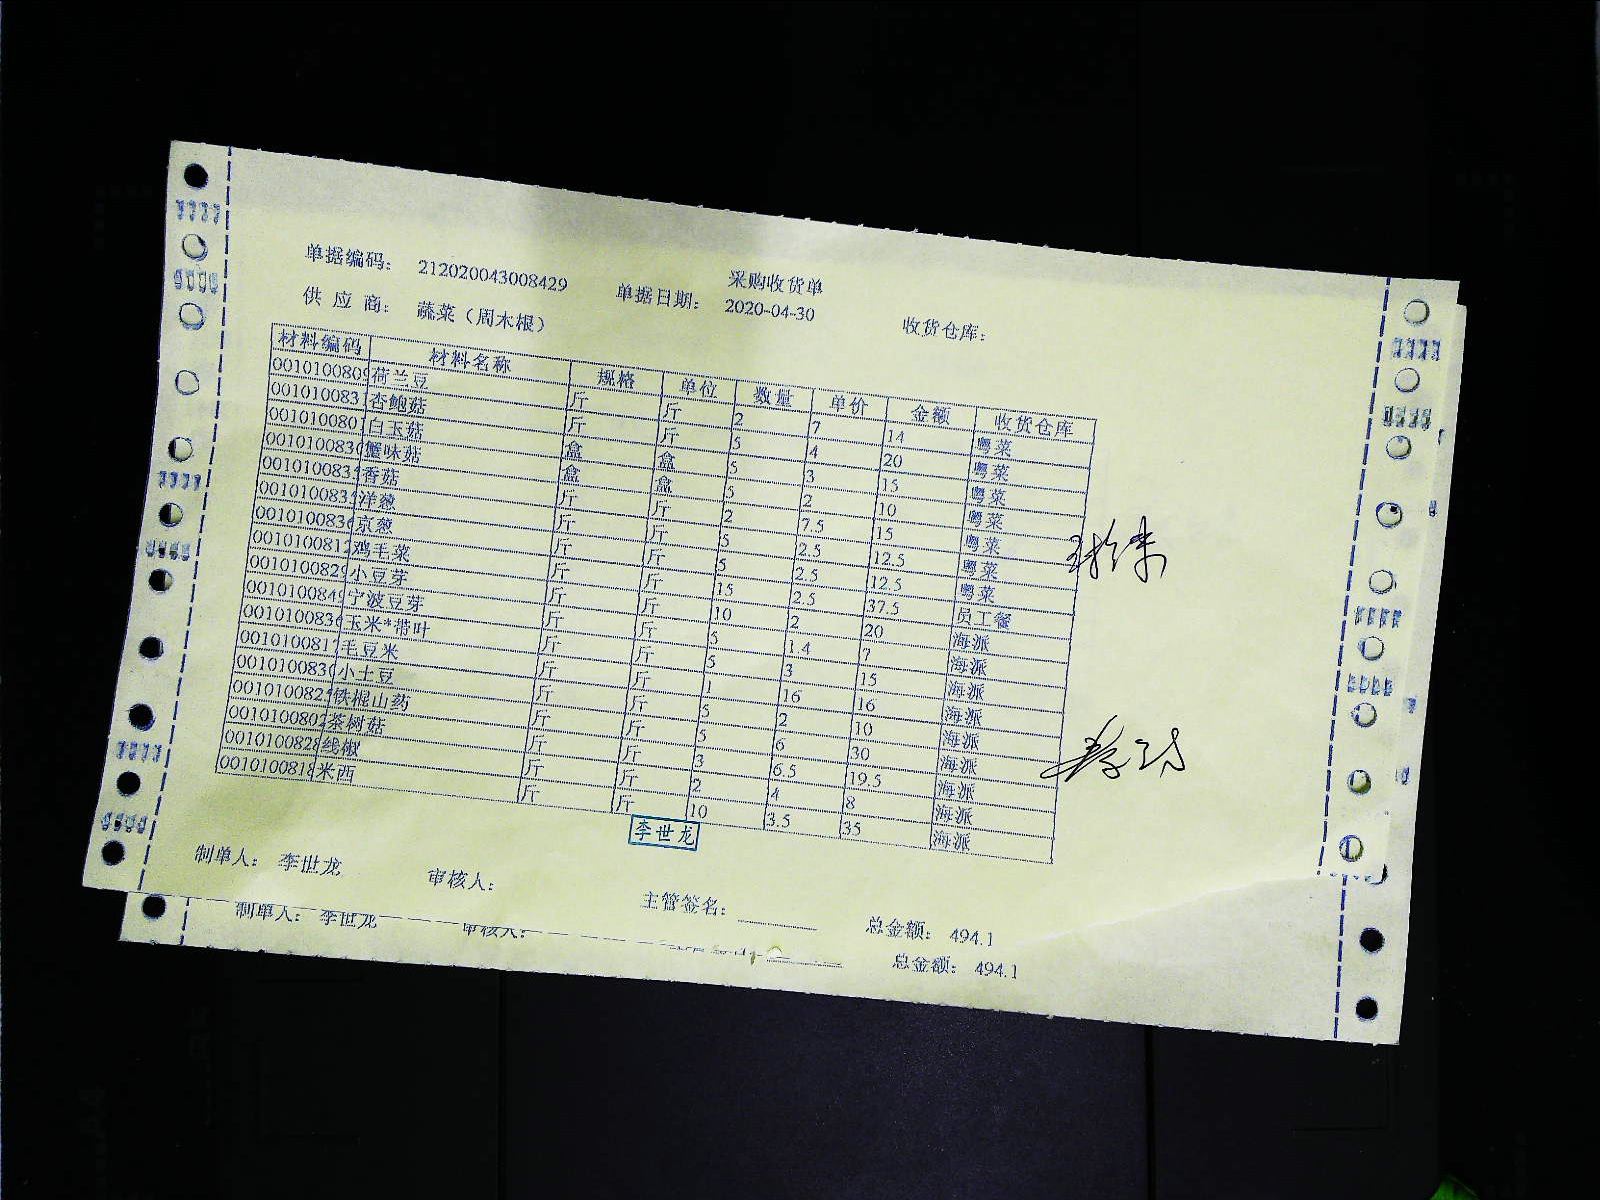 采购收货单
单据编码： 212020043008429 单据日期： 2020-04-30 收货仓库：
供 应 商： 蔬菜（周木根）
材料编码 材料名称 规格 单位 数量 单价 金额 收货仓库
0010100809 荷兰豆 斤 斤 2 7 14 粤菜
001010083 杏鲍菇 斤 斤 5 4 20 粤菜
001010080 白玉菇 盒 盒 5 3 15 粤菜
001010083 蟹味菇 盒 盒 5 2 10 粤菜
001010083 香菇 斤 斤 2 7.5 15 粤菜
001010083 洋葱 斤 斤 5 2.5 12.5 粤菜
001010083 京葱 斤 斤 5 2.5 12.5 粤菜
001010081 鸡毛菜 斤 斤 15 2.5 37.5 员工餐
001010082 小豆芽 斤 斤 10 2 20 海派
001010084 宁波豆芽 斤 斤 5 1.4 7 海派
001010083 玉米*带叶 斤 斤 5 3 15 海派
001010081 毛豆米 斤 斤 1 16 16 海派
001010083 小土豆 斤 斤 5 2 10 海派
001010082 铁棍山药 斤 斤 5 6 30 海派
001010080 茶树菇 斤 斤 3 6.5 19.5 海派
0010100828 线椒 斤 斤 2 4 8 海派
0010100818 米西 斤 斤 10 3.5 35 海派
李世龙
制单人： 李世龙 审核人： 主管签名： 总金额： 494.1
制单人： 李世龙 审核人： 总金额： 494.1